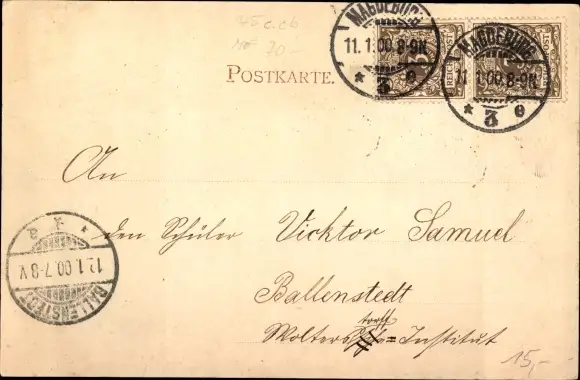 45 c. cb
MAGDEBURG
11.1.00.8-9N.
* 3 e
MAGDEBURG
11.1.00.8-9N.
* 3 e
REICHSPOST
POSTKARTE.
An
den Schüler Vicktor Samuel
Ballenstedt
torff
Wolters = Institut
BALLENSTEDT
12.1.00.7-8V.
15,-